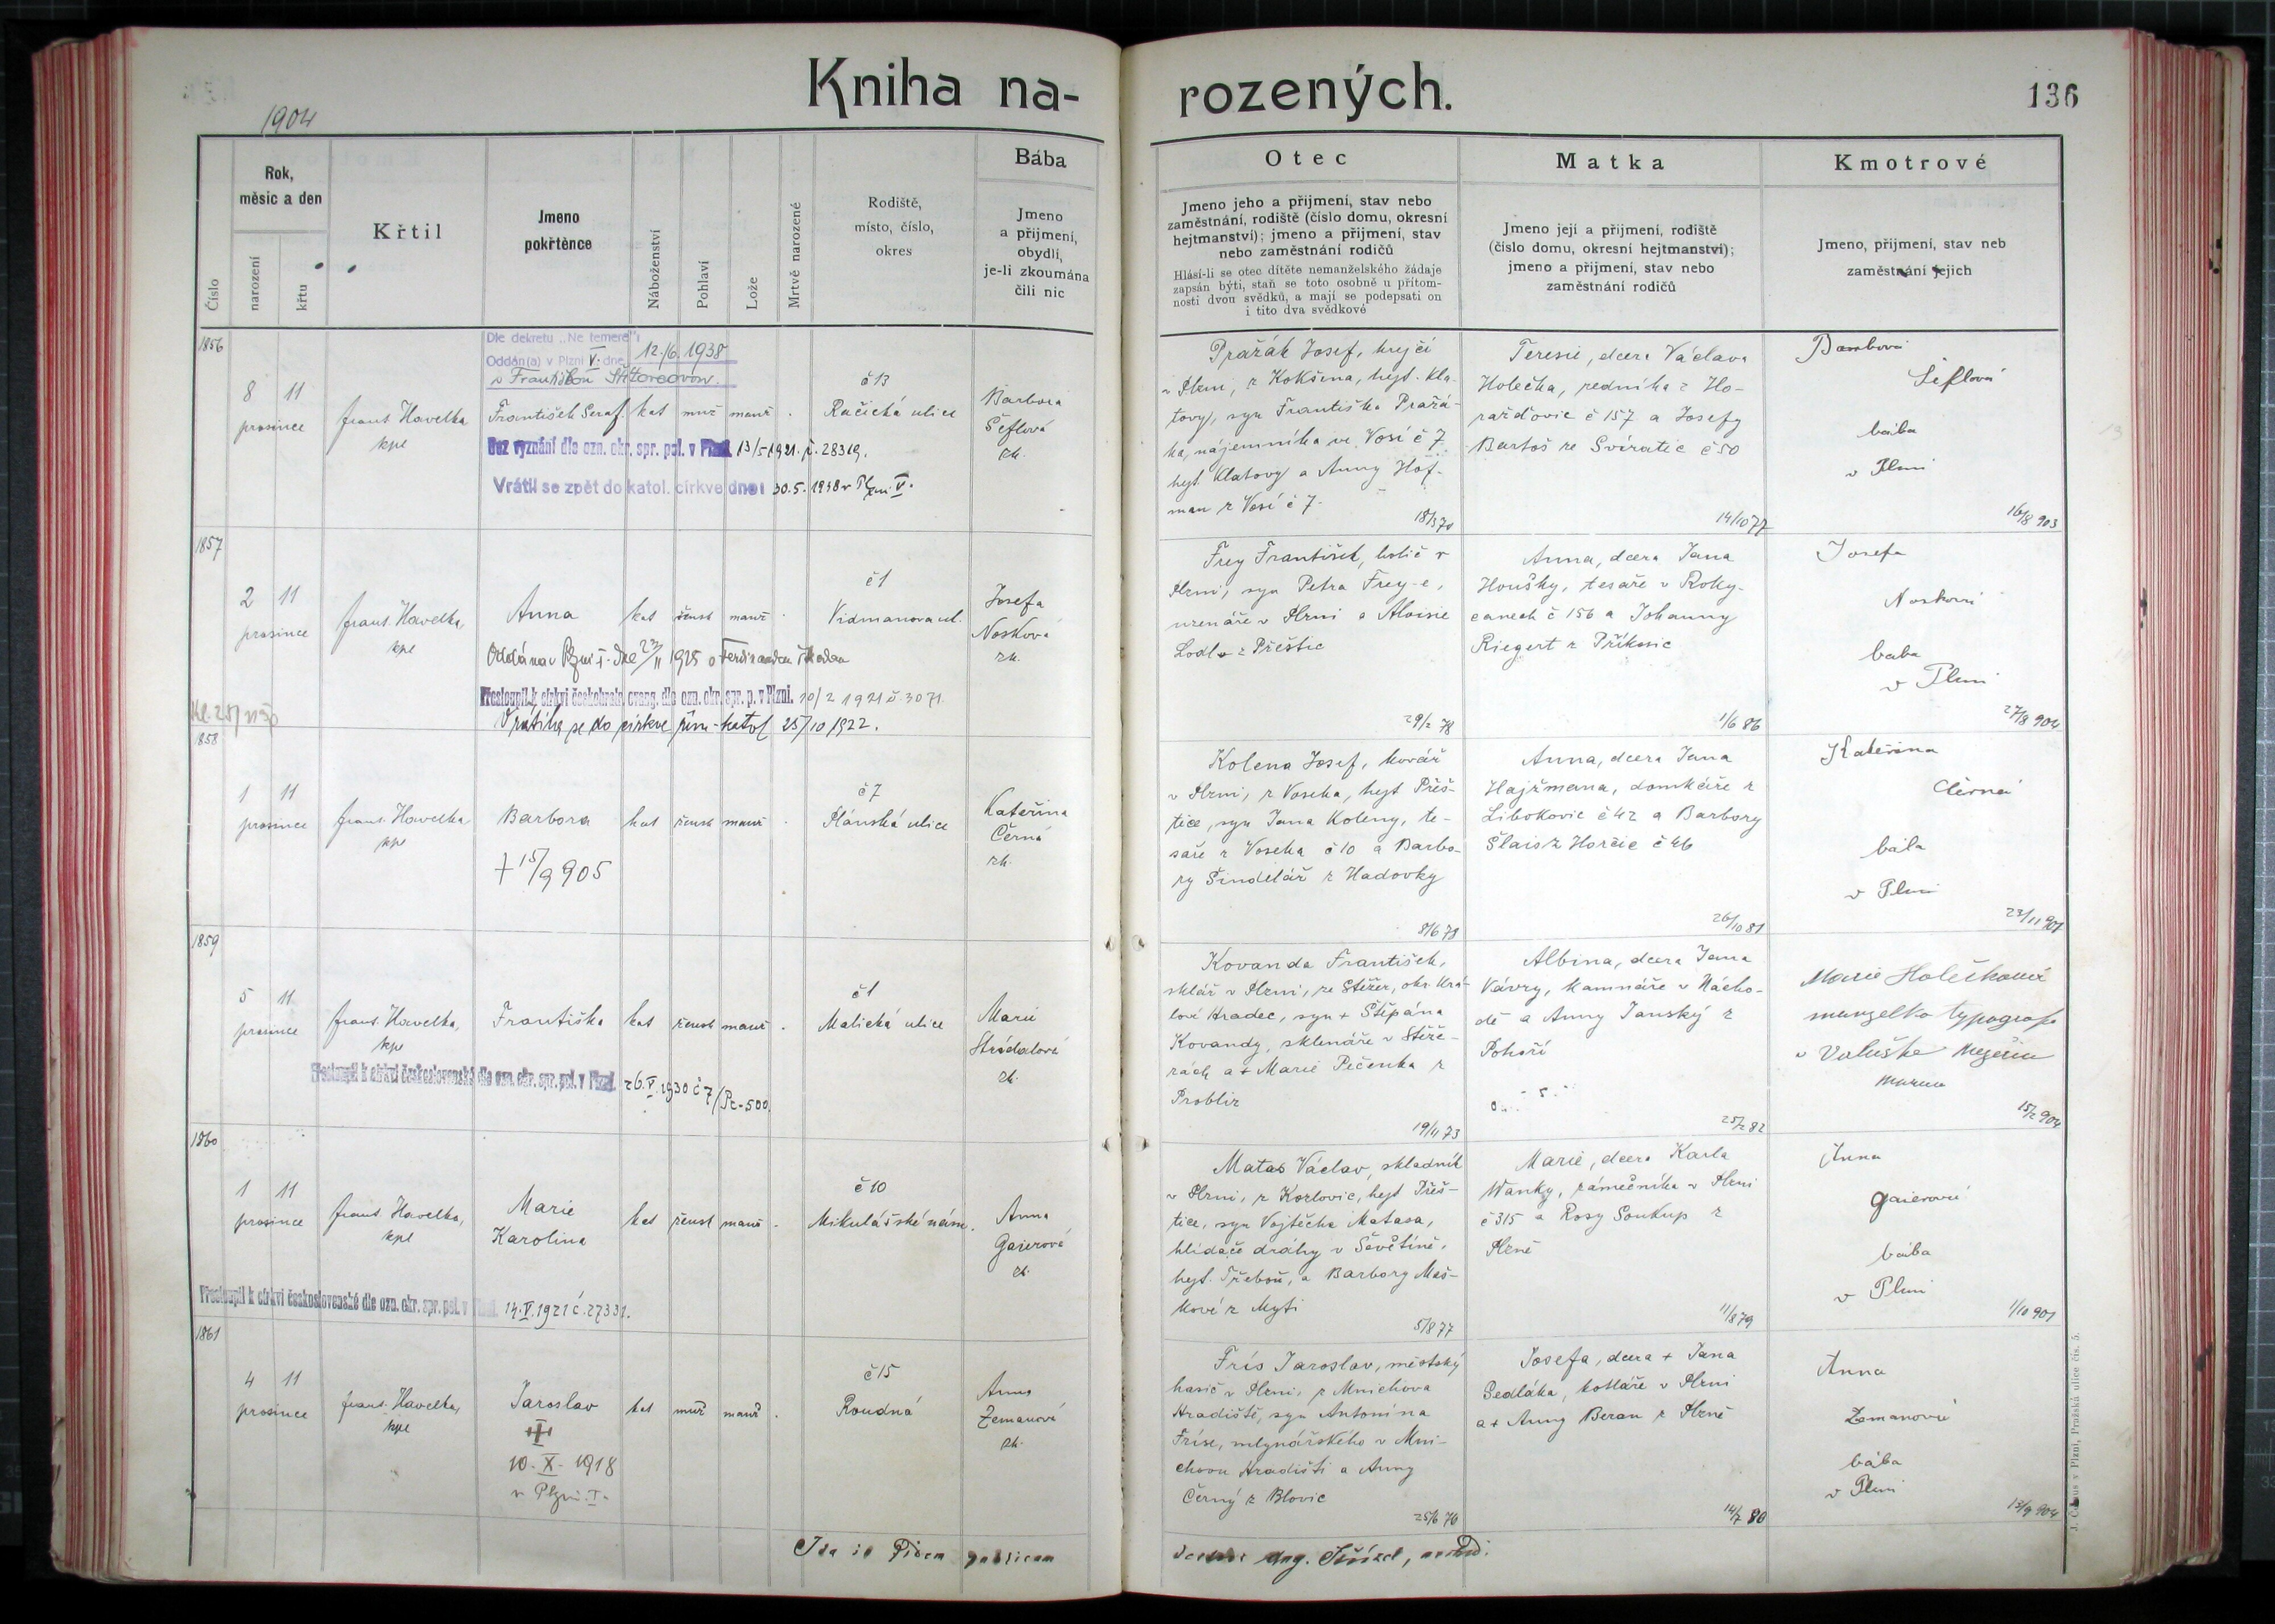 Kniha na-
rozených.
136
1904
Číslo
Rok,
měsíc a den
narození
křtu
Křtil
Jmeno
pokřtěnce
Náboženství
Pohlaví
Lože
Mrtvě narozené
Rodiště,
místo, číslo,
okres
Bába
Jmeno
a příjmení,
obydlí,
je-li zkoumána
čili nic
Otec
Jmeno jeho a příjmení, stav nebo
zaměstnání, rodiště (číslo domu, okresní
hejtmanství); jmeno a příjmení, stav
nebo zaměstnání rodičů
Hlásí-li se otec dítěte nemanželského žádaje
zapsán býti, staň se toto osobně u přítom-
nosti dvou svědků, a mají se podepsati on
i tito dva svědkové
Matka
Jmeno její a příjmení, rodiště
(číslo domu, okresní hejtmanství);
jmeno a příjmení, stav nebo
zaměstnání rodičů
Kmotrové
Jmeno, příjmení, stav neb
zaměstnání jejich
1856
8 11
prosince
frant. Havelka
kpl
Dle dekretu „Ne temere"
Oddán(a) v Plzni V. dne 12./6. 1938
s Františkou
František Seraf.
kat muž manž .
č 13
Račická ulice
Barbora
Šeflová
zk.
Bez vyznání dle ozn. okr. spr. pol. v Plzni 13/5 1921. č. 28319.
Vrátil se zpět do katol. církve dne: 30.5. 1938 v Plzni V.
Pražák Josef, krejčí
v Plzni, z Kokšína, hejt. Kla-
tovy, syn Františka Pražá-
ka, nájemníka ve Vosí č 7
hejt. Klatovy a Anny Hof-
man z Vosí č 7.
18/3 70
Teresie, dcera Václava
Holečka, ředníka z Ho-
ražďovic č 157 a Josefy
Bartoš ze Svíratic č 50
14/10 77
Barbora
Šeflová
bába
v Plzni
16/8 903
1857
2 11
prosince
frant. Havelka,
kpl
Anna
kat žensk manž .
č 1
Vidmanova ul.
Josefa
Nosková
zk.
Oddána v Plzni I. dne 23/11 1925 s Ferdinandem
Přestoupil k církvi českobratr. evang. dle ozn. okr. spr. p. v Plzni. 10/2 1921 č. 3071.
Vrátila se do církve řím-katol 25/10 1922.
Frey František, holič v
Plzni, syn Petra Frey-e,
uzenáře v Plzni a Aloisie
Lodl z Přeštic
29/2 78
Anna, dcera Jana
Houšky, tesaře v Roky-
canech č 156 a Johanny
Riegert z Příkosic
1/6 86
Josefa
Nosková
bába
v Plzni
27/8 904
1858
1 11
prosince
frant. Havelka
kpl
Barbora
kat žensk manž .
č 7
Plánská ulice
Kateřina
Černá
zk.
+ 15/9 905
Kolena Josef, kovář
v Plzni, z Voseka, hejt Přeš-
tice, syn Jana Koleny, te-
saře z Voseka č 10 a Barbo-
ry Šindelář z Hadovky
8/6 78
Anna, dcera Jana
Hajžmana, domkáře z
Libokovic č 42 a Barbory
Šlais z Horšic č 46
26/10 81
Kateřina
Černá
bába
v Plzni
23/11 901
1859
5 11
prosince
frant. Havelka,
kpl
Františka
kat žensk manž .
č 1
Malická ulice
Marie
Strádalová
zk.
Přestoupil k církvi československé dle ozn. okr. spr. pol. v Plzni 26.V.1930 č 7/Pc-500.
Kovanda František,
sklář v Plzni, ze Stěžer, okr. Krá-
lové Hradec, syn + Štěpána
Kovandy, sklenáře v Stěže-
rách a + Marie Pečenka z
Probluz
19/4 73
Albina, dcera Jana
Vávry, kamnáře v Nácho-
dě a Anny Janský z
Pohoří
25/2 82
Marie Holečková
manželka typografa
15/2 904
1860
1 11
prosince
frant. Havelka,
kpl
Marie
Karolina
kat žensk manž .
č 10
Mikulášské nám.
Anna
Gaierová
zk.
Přestoupil k církvi československé dle ozn. okr. spr. pol. v Plzni. 14.V.1921 č. 27331.
Matas Václav, skladník
v Plzni, z Kozlovic, hejt Přeš-
tice, syn Vojtěcha Matasa,
hlídače dráhy v Ševětíně,
hejt. Třeboň, a Barbory Maš-
kové z Mýti
5/8 77
Marie, dcera Karla
Wanky, zámečníka v Plzni
č 315 a Rosy Soukup z
Plzně
11/8 79
Anna
Gaierová
bába
v Plzni
1/10 901
1861
4 11
prosince
frant. Havelka,
kpl
Jaroslav
kat muž manž .
č 15
Roudná
Anna
Zemanová
zk.
10. X. 1918
v Plzni. I.
Frís Jaroslav, městský
hasič v Plzni, z Mnichova
Hradiště, syn Antonína
Fríse, mlynářského v Mni-
chovu Hradišti a Anny
Černý z Blovic
25/6 76
Josefa, dcera + Jana
Sedláka, kotláře v Plzni
a + Anny Beran z Plzně
14/7 80
Anna
Zemanová
bába
v Plzni
13/9 904
Ita in fidem publicam